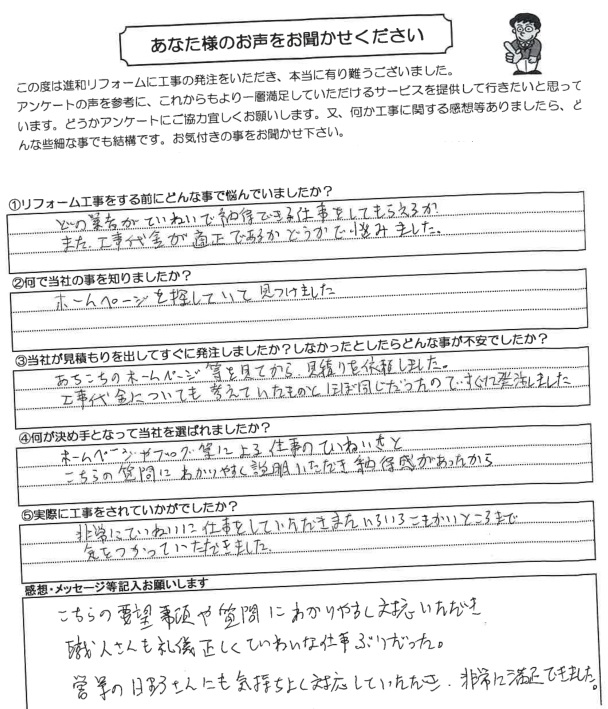 あなた様のお声をお聞かせください
この度は進和リフォームに工事の発注をいただき、本当に有り難うございました。
アンケートの声を参考に、これからもより一層満足していただけるサービスを提供して行きたいと思って
います。どうかアンケートにご協力宜しくお願いします。又、何か工事に関する感想等ありましたら、ど
んな些細な事でも結構です。お気付きの事をお聞かせ下さい。
①リフォーム工事をする前にどんな事で悩んでいましたか?
どの業者がていねいで納得できる仕事をしてもらえるか
また、工事代金が適正であるかどうかで悩みました。
②何で当社の事を知りましたか?
ホームページを探していて見つけました
③当社が見積もりを出してすぐに発注しましたか?しなかったとしたらどんな事が不安でしたか?
あちこちのホームページ等を見てから、見積りを依頼しました。
工事代金についても考えていたものとほぼ同じだったので、すぐに発注しました
④何が決め手となって当社を選ばれましたか?
ホームページやブログ等による仕事のていねいさと
こちらの質問にわかりやすく説明いただき納得感があったから
⑤実際に工事をされていかがでしたか?
非常にていねいに仕事をしていただきまたいろいろこまかいところまで
気をつかっていただきました。
感想・メッセージ等記入お願いします
こちらの要望事項や質問にわかりやすく対応いただき
職人さんも礼儀正しくていねいな仕事ぶりだった。
営業の さんにも気持ちよく対応していただき、非常に満足できました。